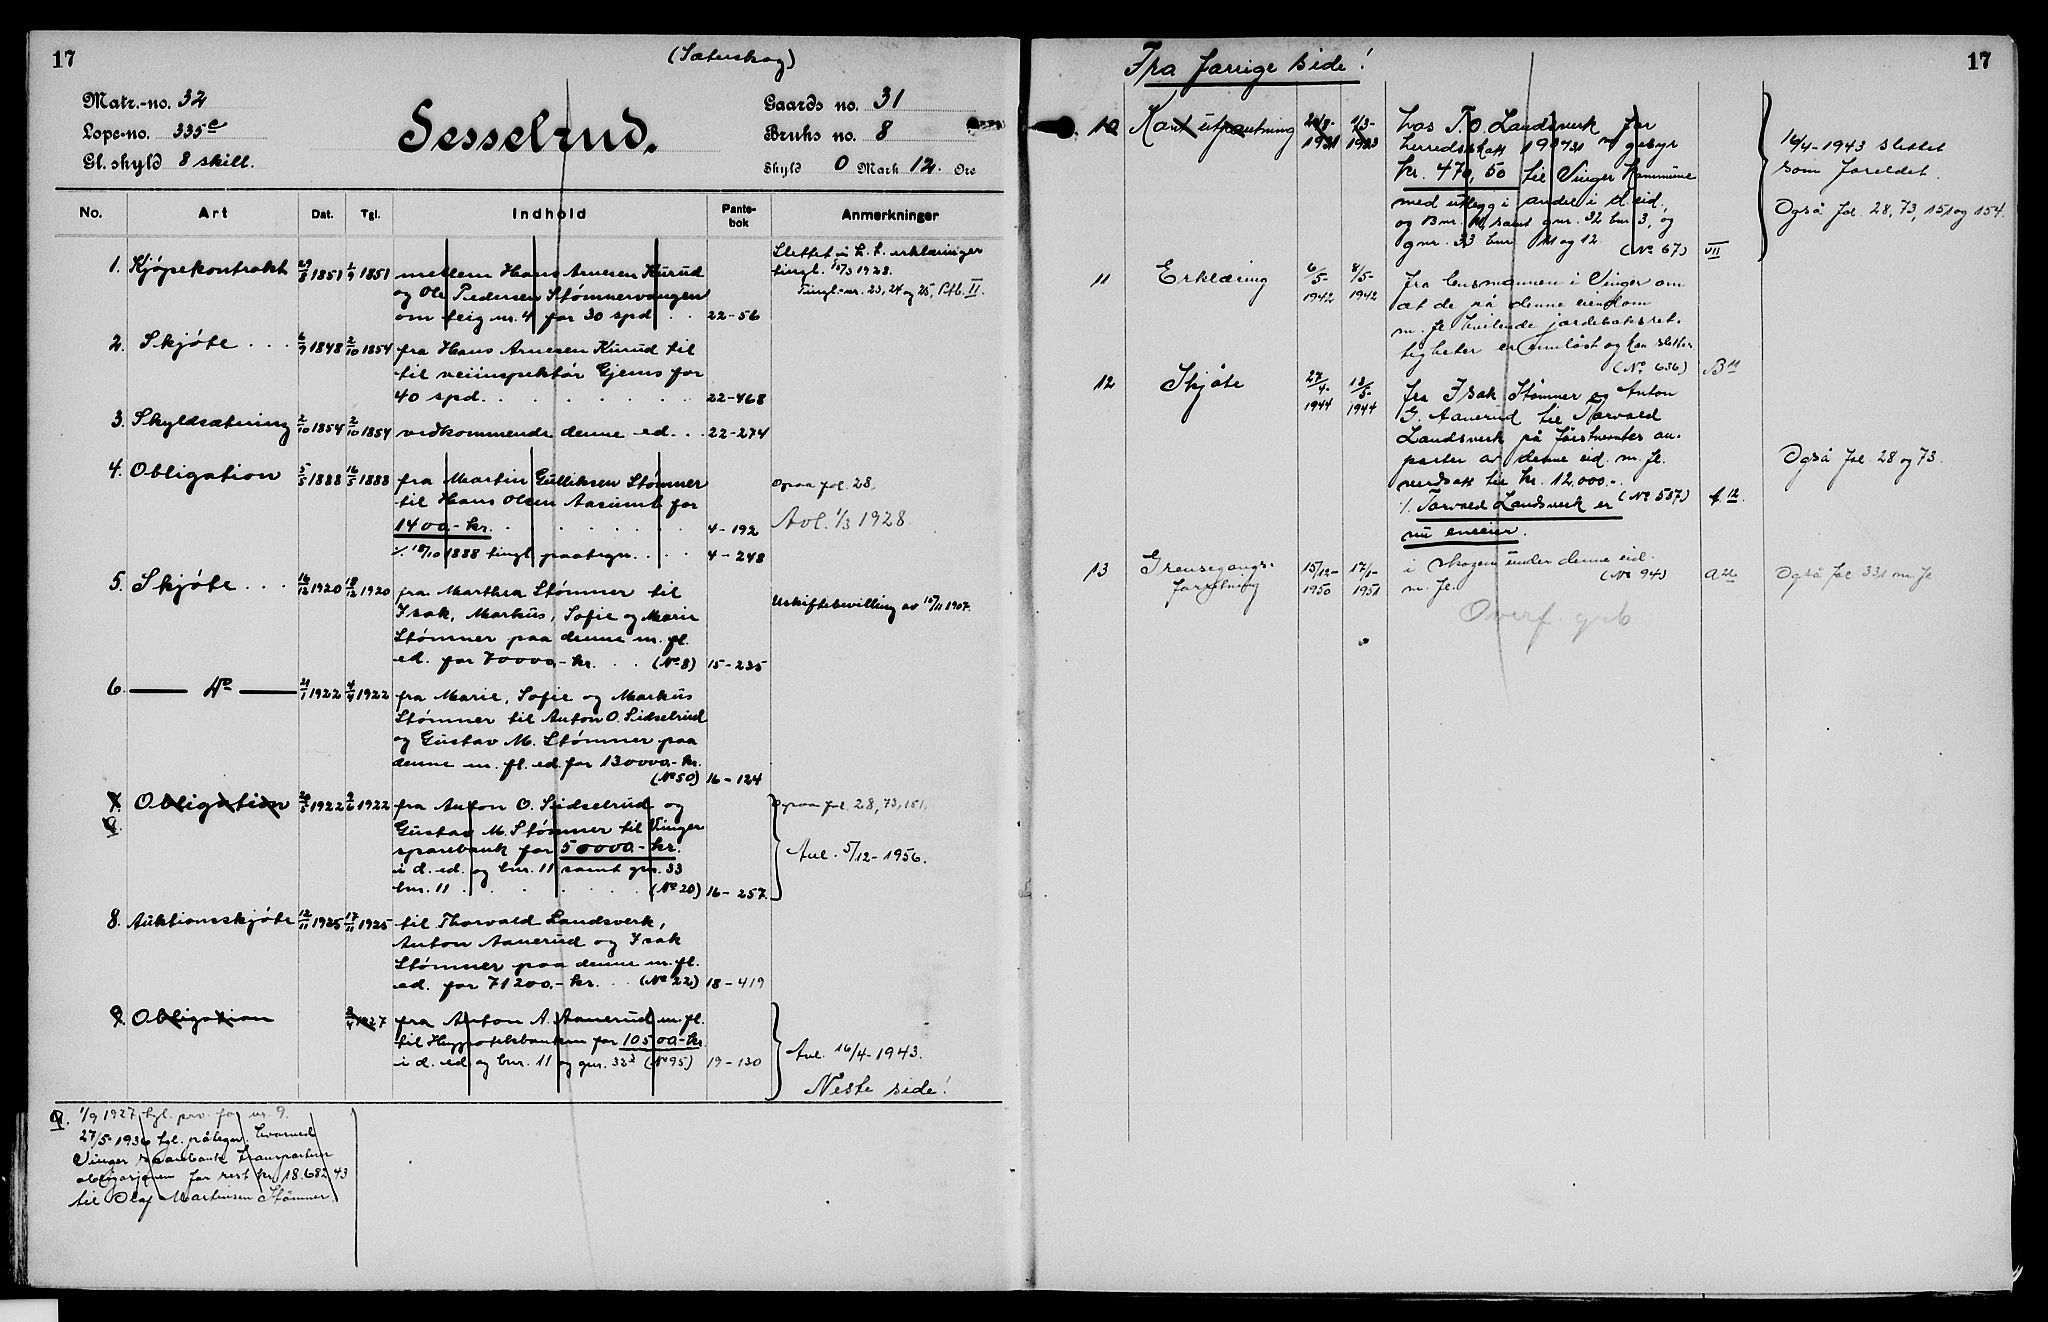 17
(Sæterskog)
Matr.-no. 32
Løpe-no. 335c
Gl. skyld 8 skill.
Sesselrud.
Gaards no. 31
Bruks no. 8
Skyld 0 Mark 12. Øre
No. Art Dat. Tgl. Indhold Pante-bok Anmerkninger
1. Kjøpekontrakt 29/8 1851 1/9 1851 mellem Hans Arnesen Kurud
og Ole Pedersen Stømnervangen
om teig nr. 4 for 30 spd. . . 22-56
Slettet i h. t. erklæringer
tingl. 15/3 1928.
Tingl.-nr. 23, 24 og 25, Ptb. II.
2. Skjøte . . . 6/9 1848 2/10 1854 fra Hans Arnesen Kurud til
til veiinspektør Gjems for
40 spd. . . . . . . . 22-468
3. Skyldsætning 2/10 1854 2/10 1854 vedkommende denne ed. . . 22-274
4. Obligation 5/5 1888 16/5 1888 fra Martin Gulliksen Stømner
til Hans Olsen Aasumb for
1400,- kr. . . . . . . 4-192
Ogsaa fol. 28.
Avl. 1/3 1928.
% 18/10 1888 tingl. paategn. . . . 4-248
5. Skjøte . . . 16/12 1920 18/12 1920 fra Marthea Stømner til
Isak, Markus, Sofie og Marie
Stømner paa denne m. fl.
ed. for 70000,- kr. . . (No 8) 15-235
Uskiftebevilling av 15/11 1907.
6. — Do — 2/1 1922 4/4 1922 fra Marie, Sofie og Markus
Stømner til Anton O. Sidselrud
og Gustav M. Stømner paa
denne m. fl. ed. for 130000,- kr.
(No 50) 16-124
7. Obligation 20/5 1922 9/6 1922 fra Anton O. Sidselrud og
Gustav M. Stømner til Vinger
sparebank for 50000,- kr.
i d. ed. og bnr. 11 samt gnr. 33
bnr. 11 . . . . . . (No 20) 16-257.
Ogsaa fol. 28, 73, 151,
Avl. 5/12-1956.
8. Auktionsskjøte 12/11 1925 17/11 1925 til Thorvald Landsverk,
Anton Aanerud og Isak
Stømner paa denne m. fl.
ed. for 71200,- kr. . . (No 22) 18-419
9. Obligation 2/4 1927 fra Anton A. Aanerud m. fl.
til Hyppotekbanken for 10500,- kr.
i d. ed. og bnr. 11 og gnr. 32 3 (No 95) 19-130
Avl. 16/4-1943.
Neste side!
1/9 1927 tgl. prv. for nr. 9.
27/5-1936 tgl. påtegn. hvorved
Vinger sparebank transporterer
obligasjonen for rest kr. 18.682,43
til Olaf Martinsen Stømner.
17
Fra forrige side!
10 Kont utpantning 1931 1/3-1933 hos T. O. Landsverk for
herredskatt 1930/31 m gebyr
kr. 470,50 til Vinger kommune
med utlegg i andel i d. eid.,
og Bnr. 11, samt gnr. 32 bnr 3, og
gnr. 33 bnr 11 og 12. (No 67) VII
16/4-1943 slettet
som foreldet.
Også fol. 28, 73, 151 og 154.
11 Erklæring 6/5-1942 8/5-1942 fra lensmannen i Vinger om
at de på denne eiendom
m. fl. hvilende jordeboksret-
tigheter er innløst og kan slettes
(No 636) B 11
12 Skjøte 27/4-1944 13/5-1944 fra Isak Stømner og Anton
G. Aanerud til Torvald
Landsverk på førstnevntes an-
parter av denne eid. m. fl.
verdsatt til kr. 12.000.-
% Torvald Landsverk er (No 557) A 12.
nu eneeier.
Også fol. 28 og 73.
13 Grensegangs-
forretning 15/12-1950 17/1-1951 i skogen under denne eid.
m. fl. (No 94) A 26
Også fol 331 m. fl
Overf. grb